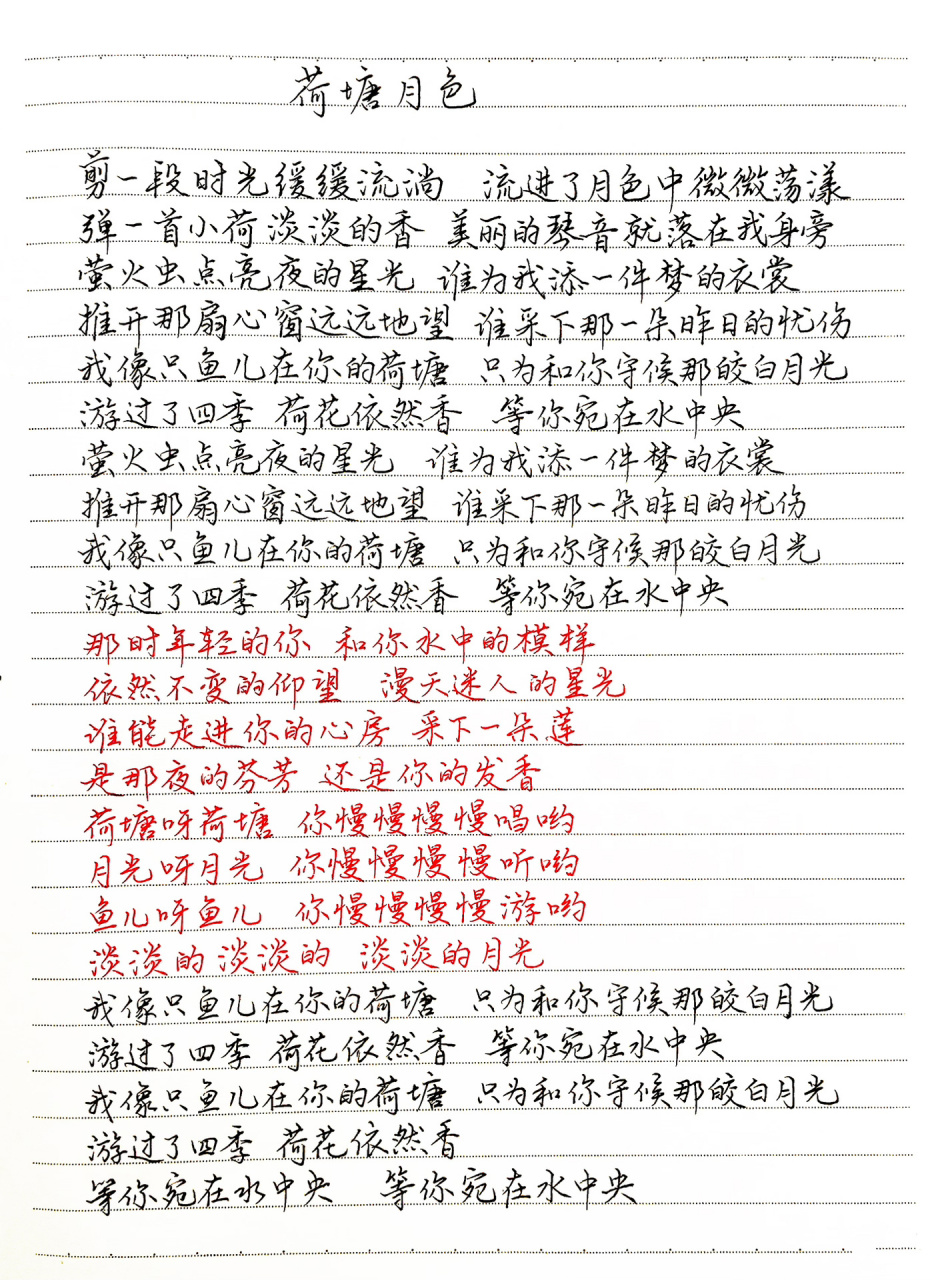 荷塘月色
剪一段时光缓缓流淌 流进了月色中微微荡漾
弹一首小荷淡淡的香 美丽的琴音就落在我身旁
萤火虫点亮夜的星光 谁为我添一件梦的衣裳
推开那扇心窗远远地望 谁采下那一朵昨日的忧伤
我像只鱼儿在你的荷塘 只为和你守候那皎白月光
游过了四季 荷花依然香 等你宛在水中央
萤火虫点亮夜的星光 谁为我添一件梦的衣裳
推开那扇心窗远远地望 谁采下那一朵昨日的忧伤
我像只鱼儿在你的荷塘 只为和你守候那皎白月光
游过了四季 荷花依然香 等你宛在水中央
那时年轻的你 和你水中的模样
依然不变的仰望 漫天迷人的星光
谁能走进你的心房 采下一朵莲
是那夜的芬芳 还是你的发香
荷塘呀荷塘 你慢慢慢慢唱哟
月光呀月光 你慢慢慢慢听哟
鱼儿呀鱼儿 你慢慢慢慢游哟
淡淡的淡淡的 淡淡的月光
我像只鱼儿在你的荷塘 只为和你守候那皎白月光
游过了四季 荷花依然香 等你宛在水中央
我像只鱼儿在你的荷塘 只为和你守候那皎白月光
游过了四季 荷花依然香
等你宛在水中央 等你宛在水中央